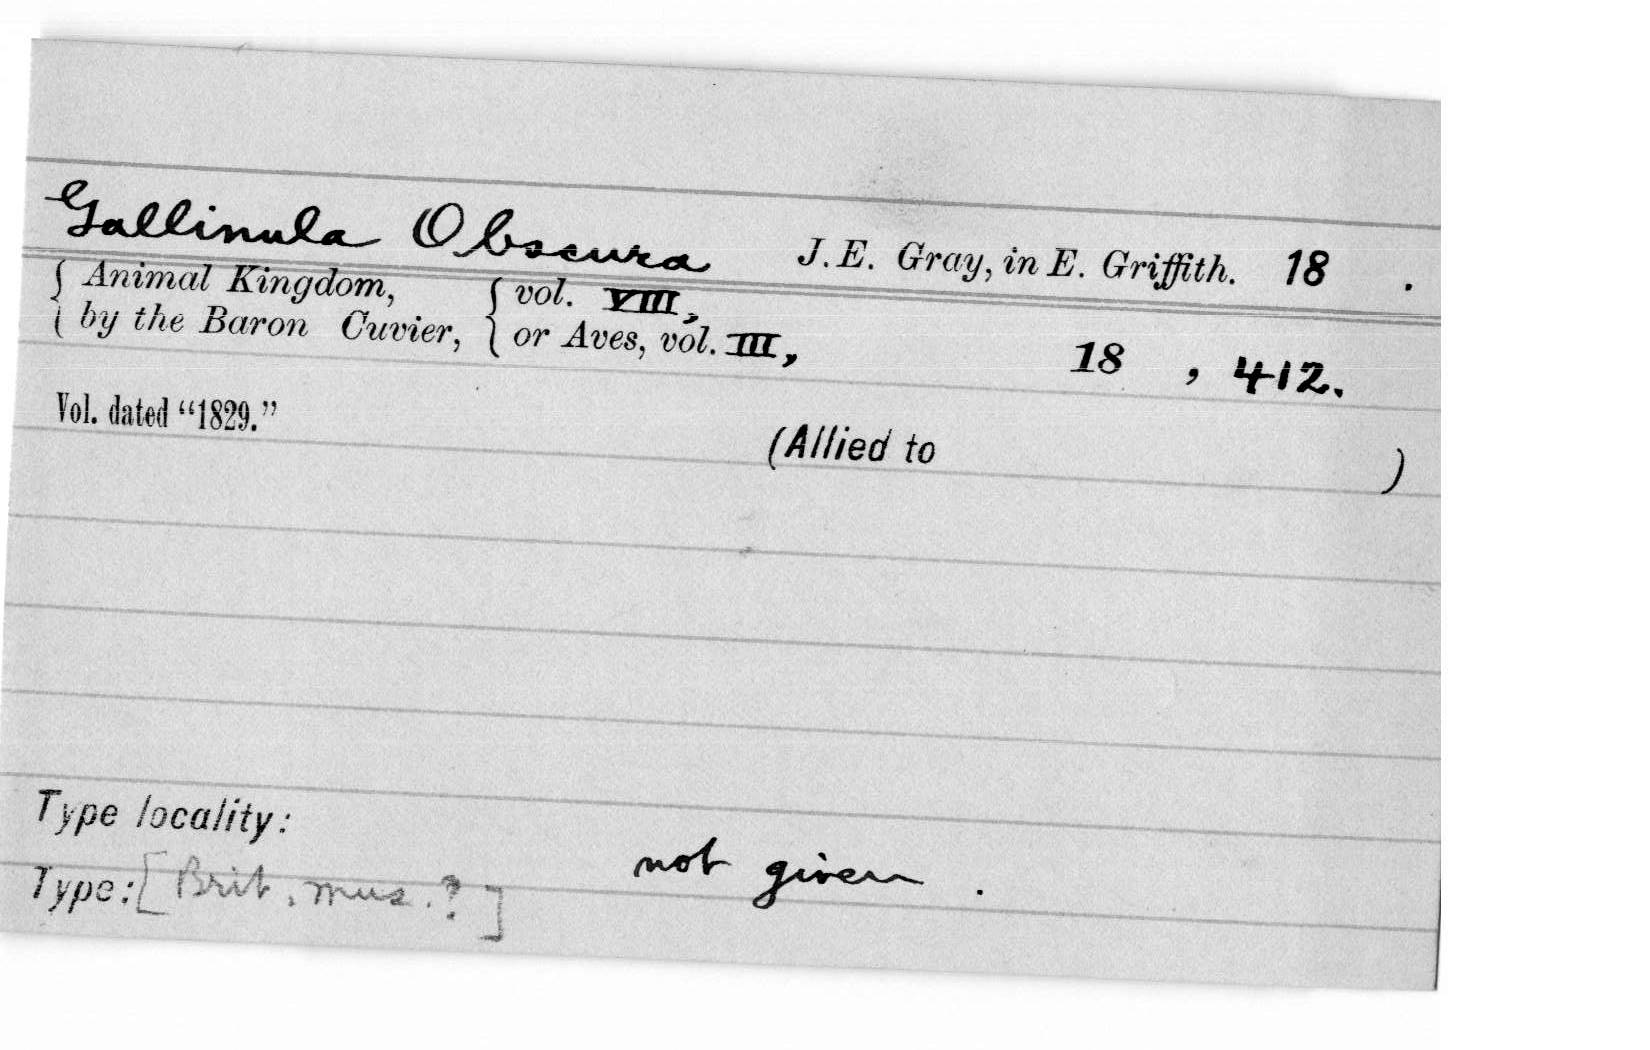 Gallinula Obscura J. E. Gray, in E. Griffith. 18 .
{ Animal Kingdom, { vol. VIII,
{ by the Baron Cuvier, { or Aves, vol. III, 18 , 412.
Vol. dated “1829.”
(Allied to )
Type locality:
not given .
Type: [Brit. mus. ?]